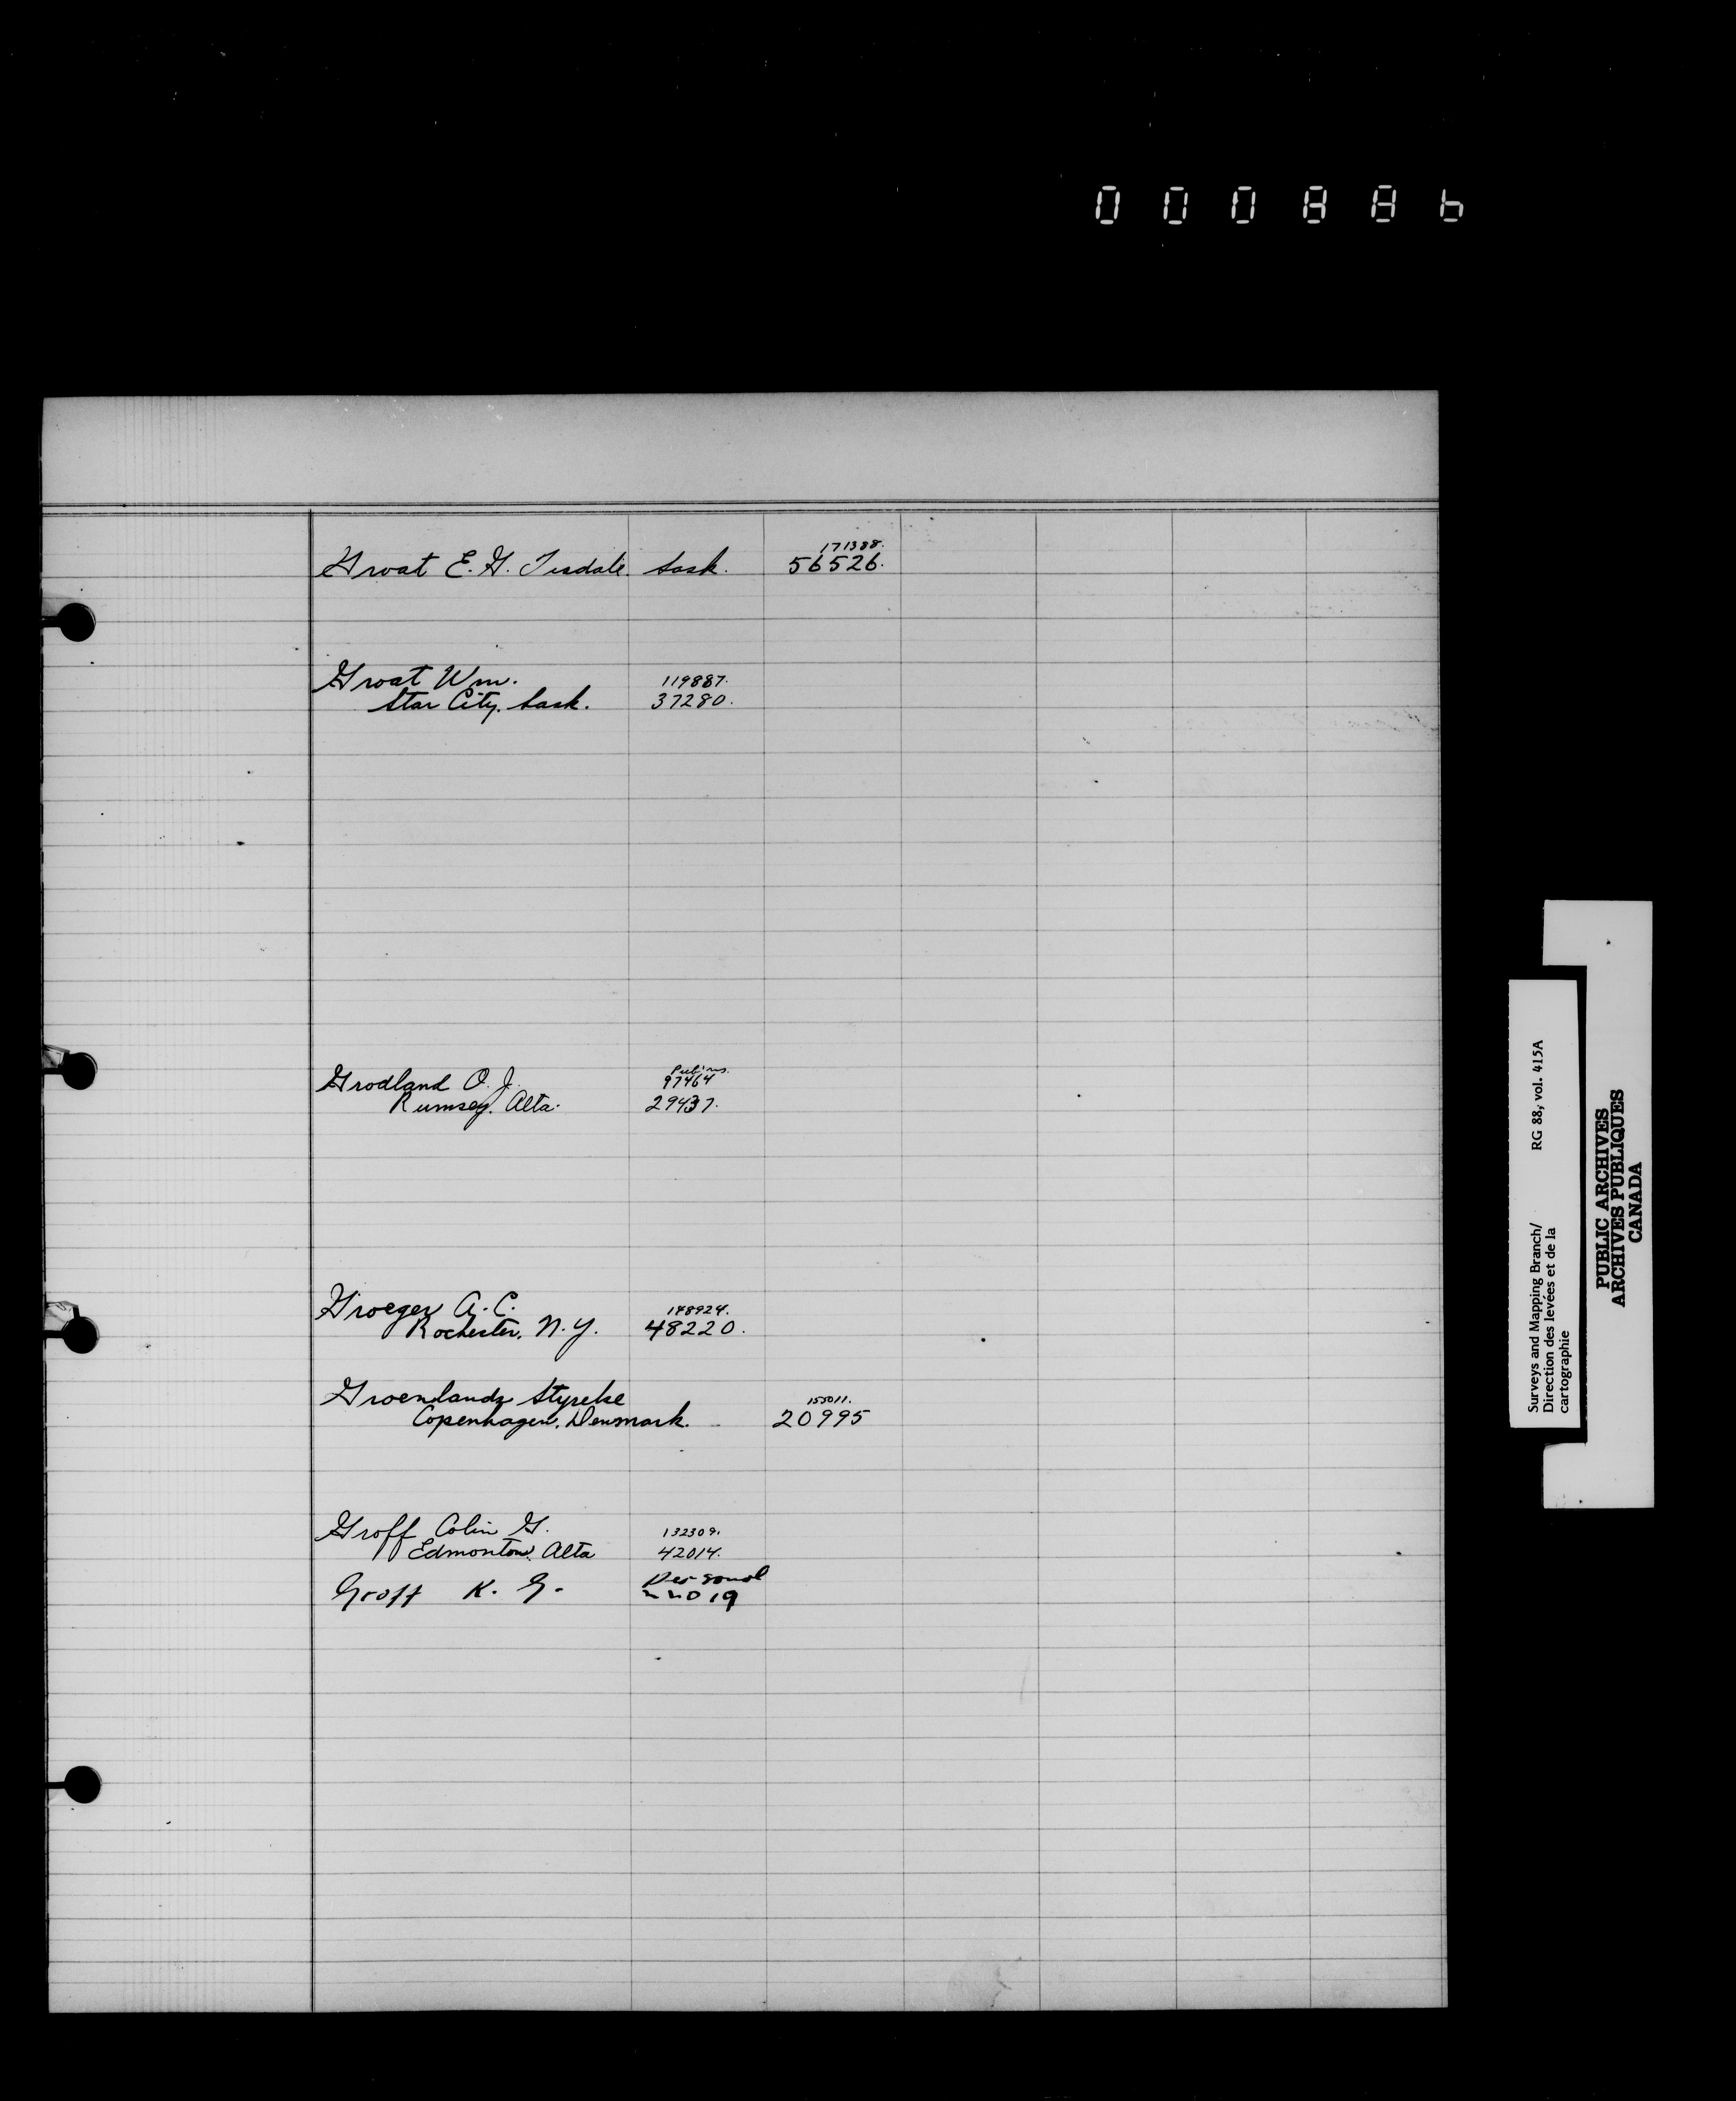 000886
171388.
Groat E. G. Tisdale. Sask. 56526.
Groat Wm. 119887.
Star City, Sask. 37280.
97464
Grodland O. J.
Rumsey, Alta. 29437.
Groeger A. C. 148924.
Rochester, N.Y. 48220.
Groenlands Styrelse 155011.
Copenhagen, Denmark. 20995
Groff Colin G. 132309.
Edmonton, Alta 42014.
Groff K. G. Personal
22019
Surveys and Mapping Branch/ RG 88, vol. 415A
Direction des levées et de la
cartographie
PUBLIC ARCHIVES
ARCHIVES PUBLIQUES
CANADA